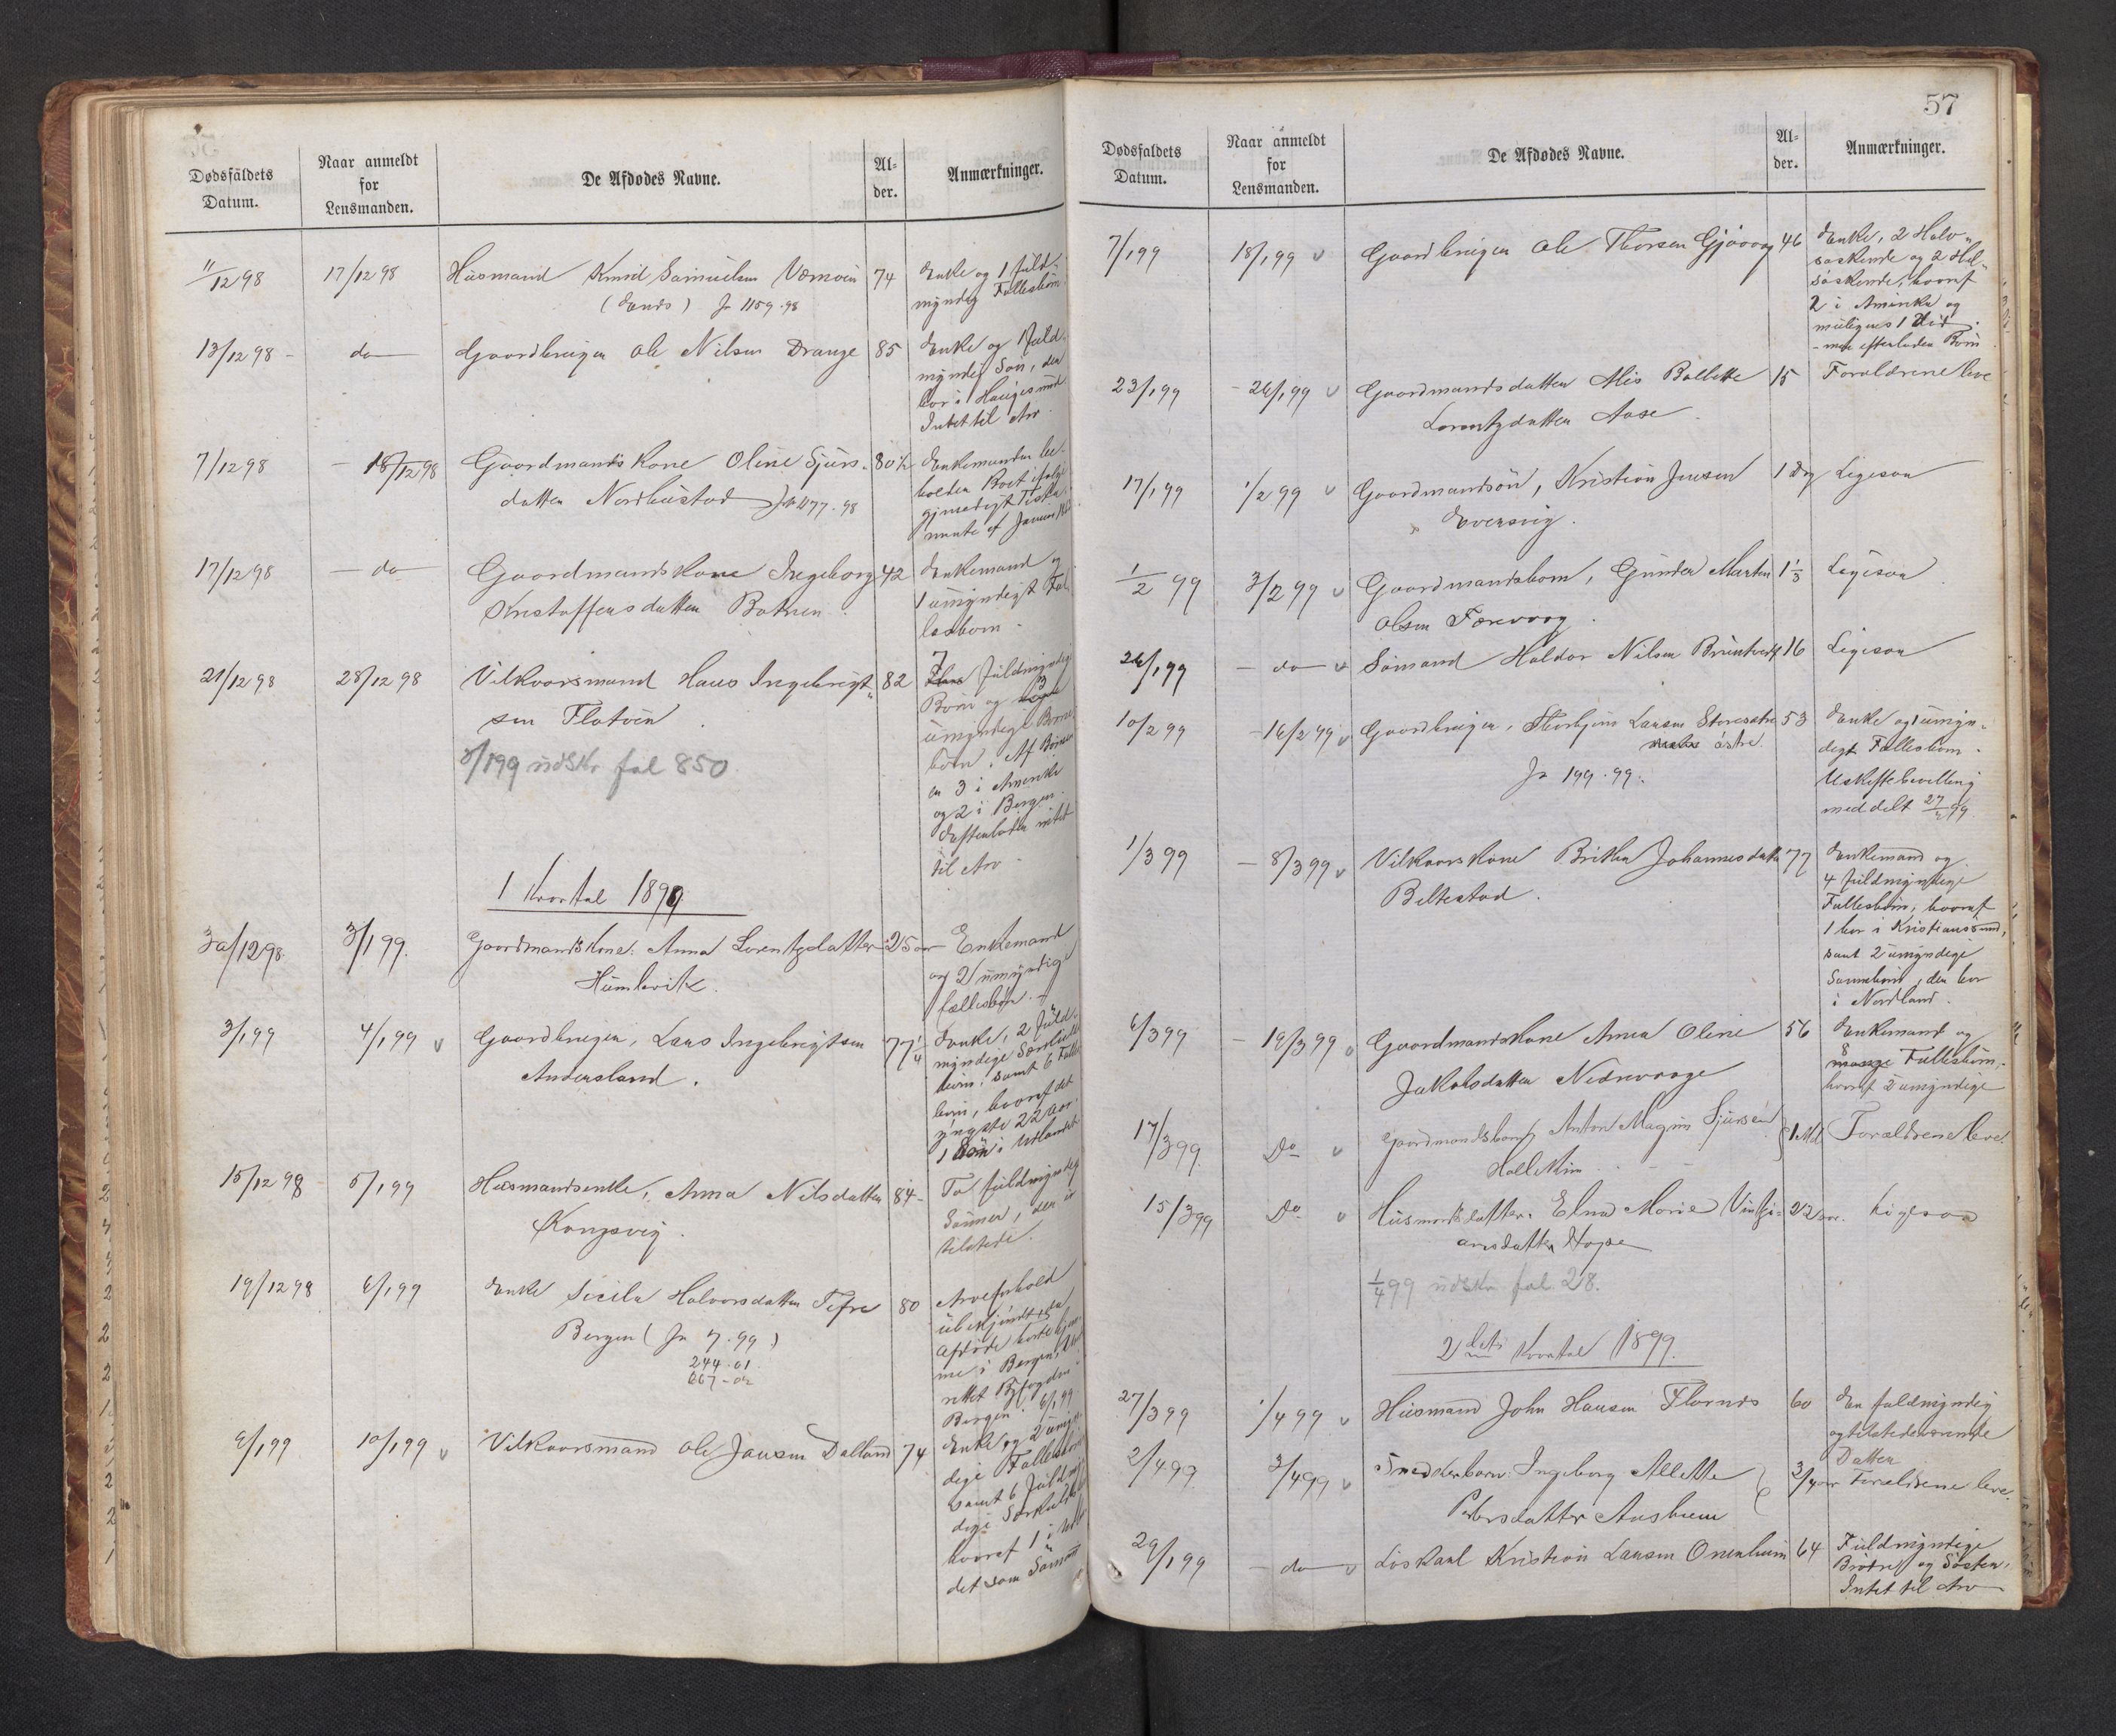 Dødsfaldets Datum.
Naar anmeldt for Lensmanden.
De Afdødes Navne.
Al-
der.
Anmærkninger.
11/12 98 17/12 98 Husmand Knud Samuelsen 74 Enke og 1 fuld-
myndig Fællesbørn
(Ænes) Jr 1159.98
13/12 98 - do Gaardbruger Ole Nilsen Drange 85 Enke og 1 fuld-
myndig Søn, der
bor i Haugesund
Intet til Arv.
7/12 98 - 18/12 98 Gaardmandskone Oline Sjurs- 80½ Enkemanden be-
datter Nordhustad Jr 1177.98
holder Boet ifølge
gjensidigt Testa-
mente af Januar
17/12 98 - do Gaardmandskone Ingeborg 42 Enkemand og
Kristoffersdatter Botnen.
1 umyndigt Fæl-
lesbarn -
21/12 98 28/12 98 Vilkaarsmand Hans Ingebrigt- 82 7 fuldmyndige
sen Flatøen
Børn og 3
umyndige Børne-
børn. Af Børnene
er 3 i Amerika
og 2 i Bergen.
Efterlader intet
til Arv -
3/1 99 udskr fol 850
1 Kvartal 1899
30/12 98. 3/1 99. Gaardmandskone: Anna Lorentzdatter 25 aar Enkemand
Humlevik.
og 2 umyndige
fællesbørn. -
3/1 99 4/1 99 v Gaardbruger, Lars Ingebrigtsen 77¼ Enke, 2 fuld-
Andersland.
myndige Særkuld-
børn, samt 6 Fælles-
børn, hvoraf det
yngste 22 Aar.
1 Søn i Udlandet
15/12 98 5/1 99 Husmandsenke, Anna Nilsdatter 84 - To fuldmyndige
Kongsvig.
Sønner, der er
tilstede.
19/12 98 6/1 99 Enke Sicila Halvorsdatter Tefre 80 Arveforhold
Bergen (Jr 7.99)
244.01.
667-02
ubekjendt, da
Afdøde hørte hjem-
me i Bergen.
rettet Byfogden i
Bergen 6/1 99
6/1 99 10/1 99 v Vilkaarsmand Ole Jansen Dalland 74 Enke og 2 umyn-
dige Fællesbørn
samt 6 fuldmyn-
dige Særkuldbørn
hvoraf 1 i Udlan-
det som Sømand
57
Dødsfaldets Datum.
Naar anmeldt for Lensmanden.
De Afdødes Navne.
Al-
der.
Anmærkninger.
7/1 99 18/1 99 v Gaardbruger Ole Thorsen Gjøvaag 46 Enke, 2 Halv-
søskende og 2 Hel-
søskende, hvoraf
2 i Amerika og
muligens 1 død
- men efterladen Børn
23/1 99 - 26/1 99 v Gaardmandsdatter Alis Bolette 15 Forældrene leve
Lorentzdatter Aase
17/1 99 1/2 99 v Gaardmandsøn, Kristian Jensen 1 Dg Ligesaa
Eversvig.
1/2 99 3/2 99 v Gaardmandsbarn, Gunder Martin 1⅓ Ligesaa
Olsen Færevaag.
26/1 99 - do v Sømand Haldor Nilsen Bruntveit 16 Ligesaa
10/2 99 - 16/2 99 v Gaardbruger, Thorbjørn Larsen Storesætre 53 Enke og 1 umyn-
østre.
digt Fællesbarn.
Jr 199.99.
Uskiftebevilling
meddelt
1/3 99 - 8/3 99 v Vilkaarskone Britha Johannesdatter 77 Enkemand og
Beltestad.
4 fuldmyndige
Fællesbørn, hvoraf
1 bor i Kristianssund,
samt 2 umyndige
Sønnebørn, der bor
i Nordland.
6/3 99 - 19/3 99 v Gaardmandskone Anna Oline 56 Enkemand og
Jakobsdatter Nedrevaage
8 Fællesbørn,
hvoraf 5 umyndige
17/3 99. Do v Gaardmandsbarn, Anton Magnus Sjursen 1 Md. Forældrene leve.
Hollekim
15/3 99 Do v Husmandsdatter. Elma Marie Vintzi- 22 aar. Ligesaa
ansdatter Hope
1/4 99 udskr fol 28.
2det Kvartal 1899.
27/3 99 1/4 99 v Husmand John Hansen Flornes 60 En fuldmyndig
og tilstedeværende
Datter
2/4 99 3/4 99 v Smedderbarn: Ingeborg Alette 3/4 aar Forældrene leve.
Pedersdatter Aasheim
29/1 99 - do v Løskarl Kristian Larsen Onenheim 64 Fuldmyndige
Brødre og Søster,
Intet til Arv